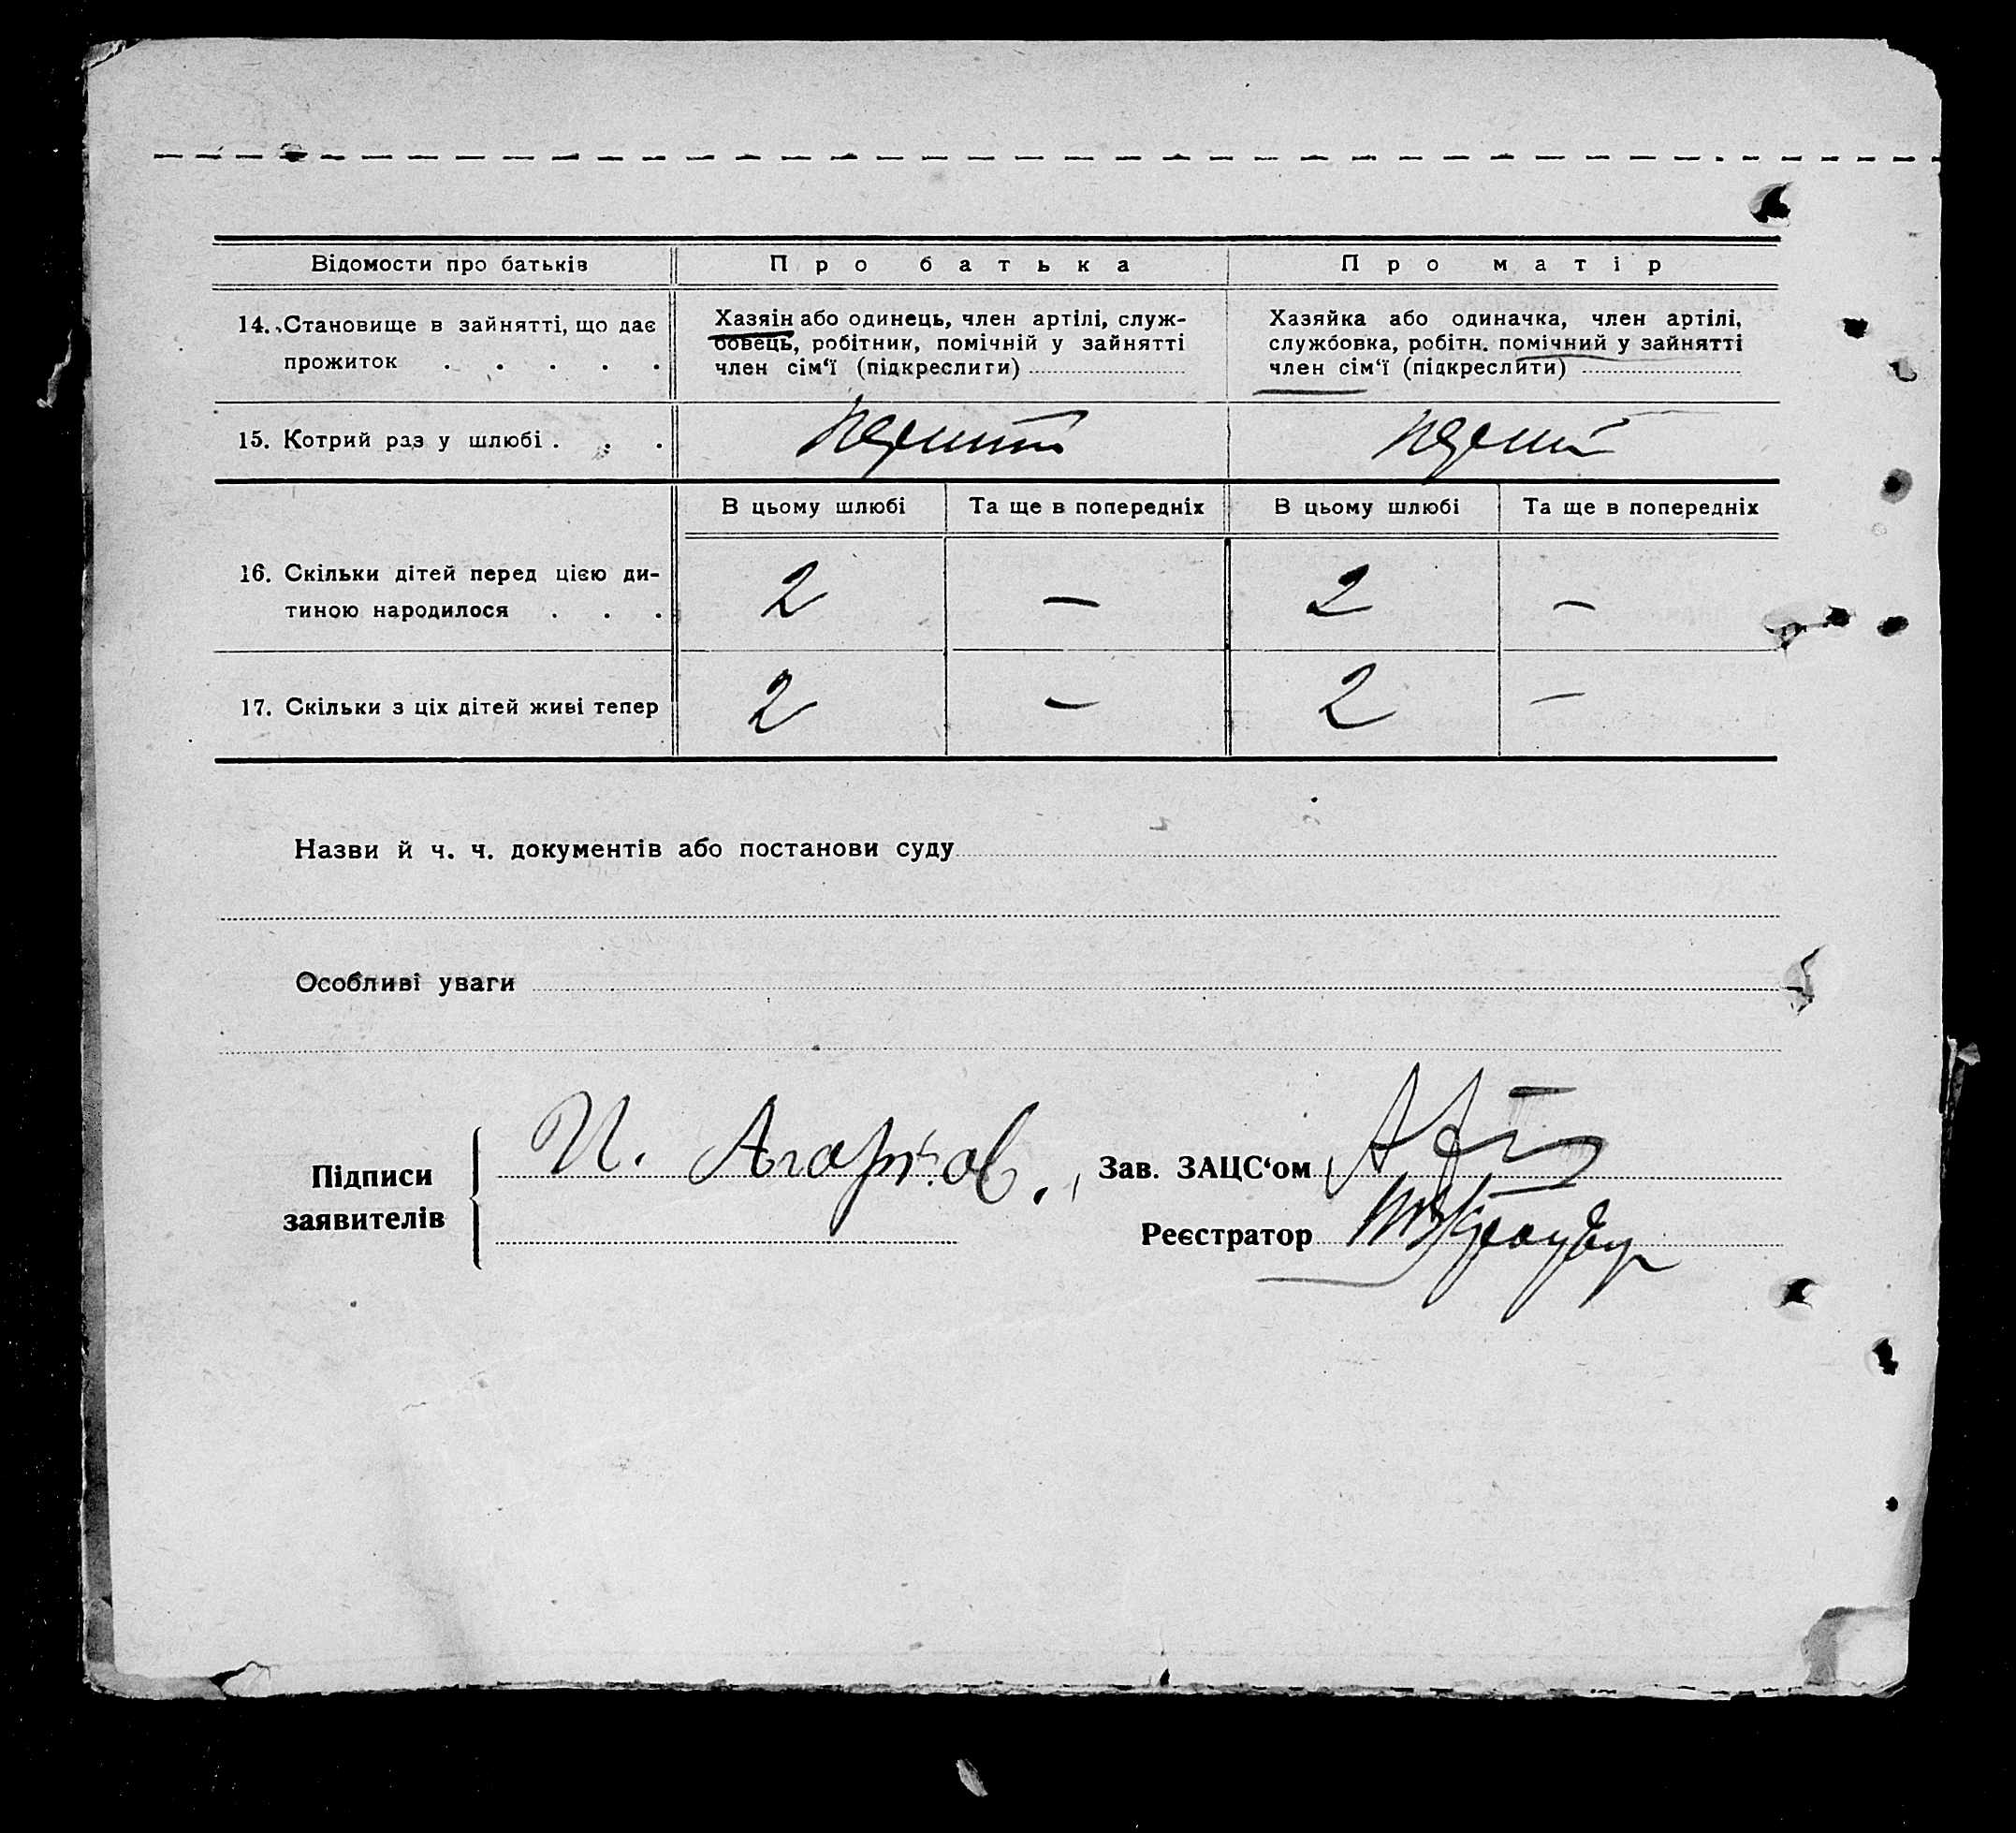 Відомости про батьків
Про батька
Про матір
14. Становище в зайнятті, що дає
прожиток . . . . .
Хазяін або одинець, член артілі, служ-
бовець, робітник, помічній у зайнятті
член сім‘ї (підкреслити)
Хазяйка або одиначка, член артілі,
службовка, робітн. помічний у зайнятті
член сім‘ї (підкреслити)
15. Котрий раз у шлюбі . . .
В цьому шлюбі
Та ще в попередніх
В цьому шлюбі
Та ще в попередніх
16. Скільки дітей перед цією ди-
тиною народилося . . .
2
—
2
—
17. Скільки з ціх дітей живі тепер
2
—
2
—
Назви й ч. ч. документів або постанови суду
Особливі уваги
Підписи
заявителів
И. Агарков.
Зав. ЗАЦС‘ом
Реєстратор